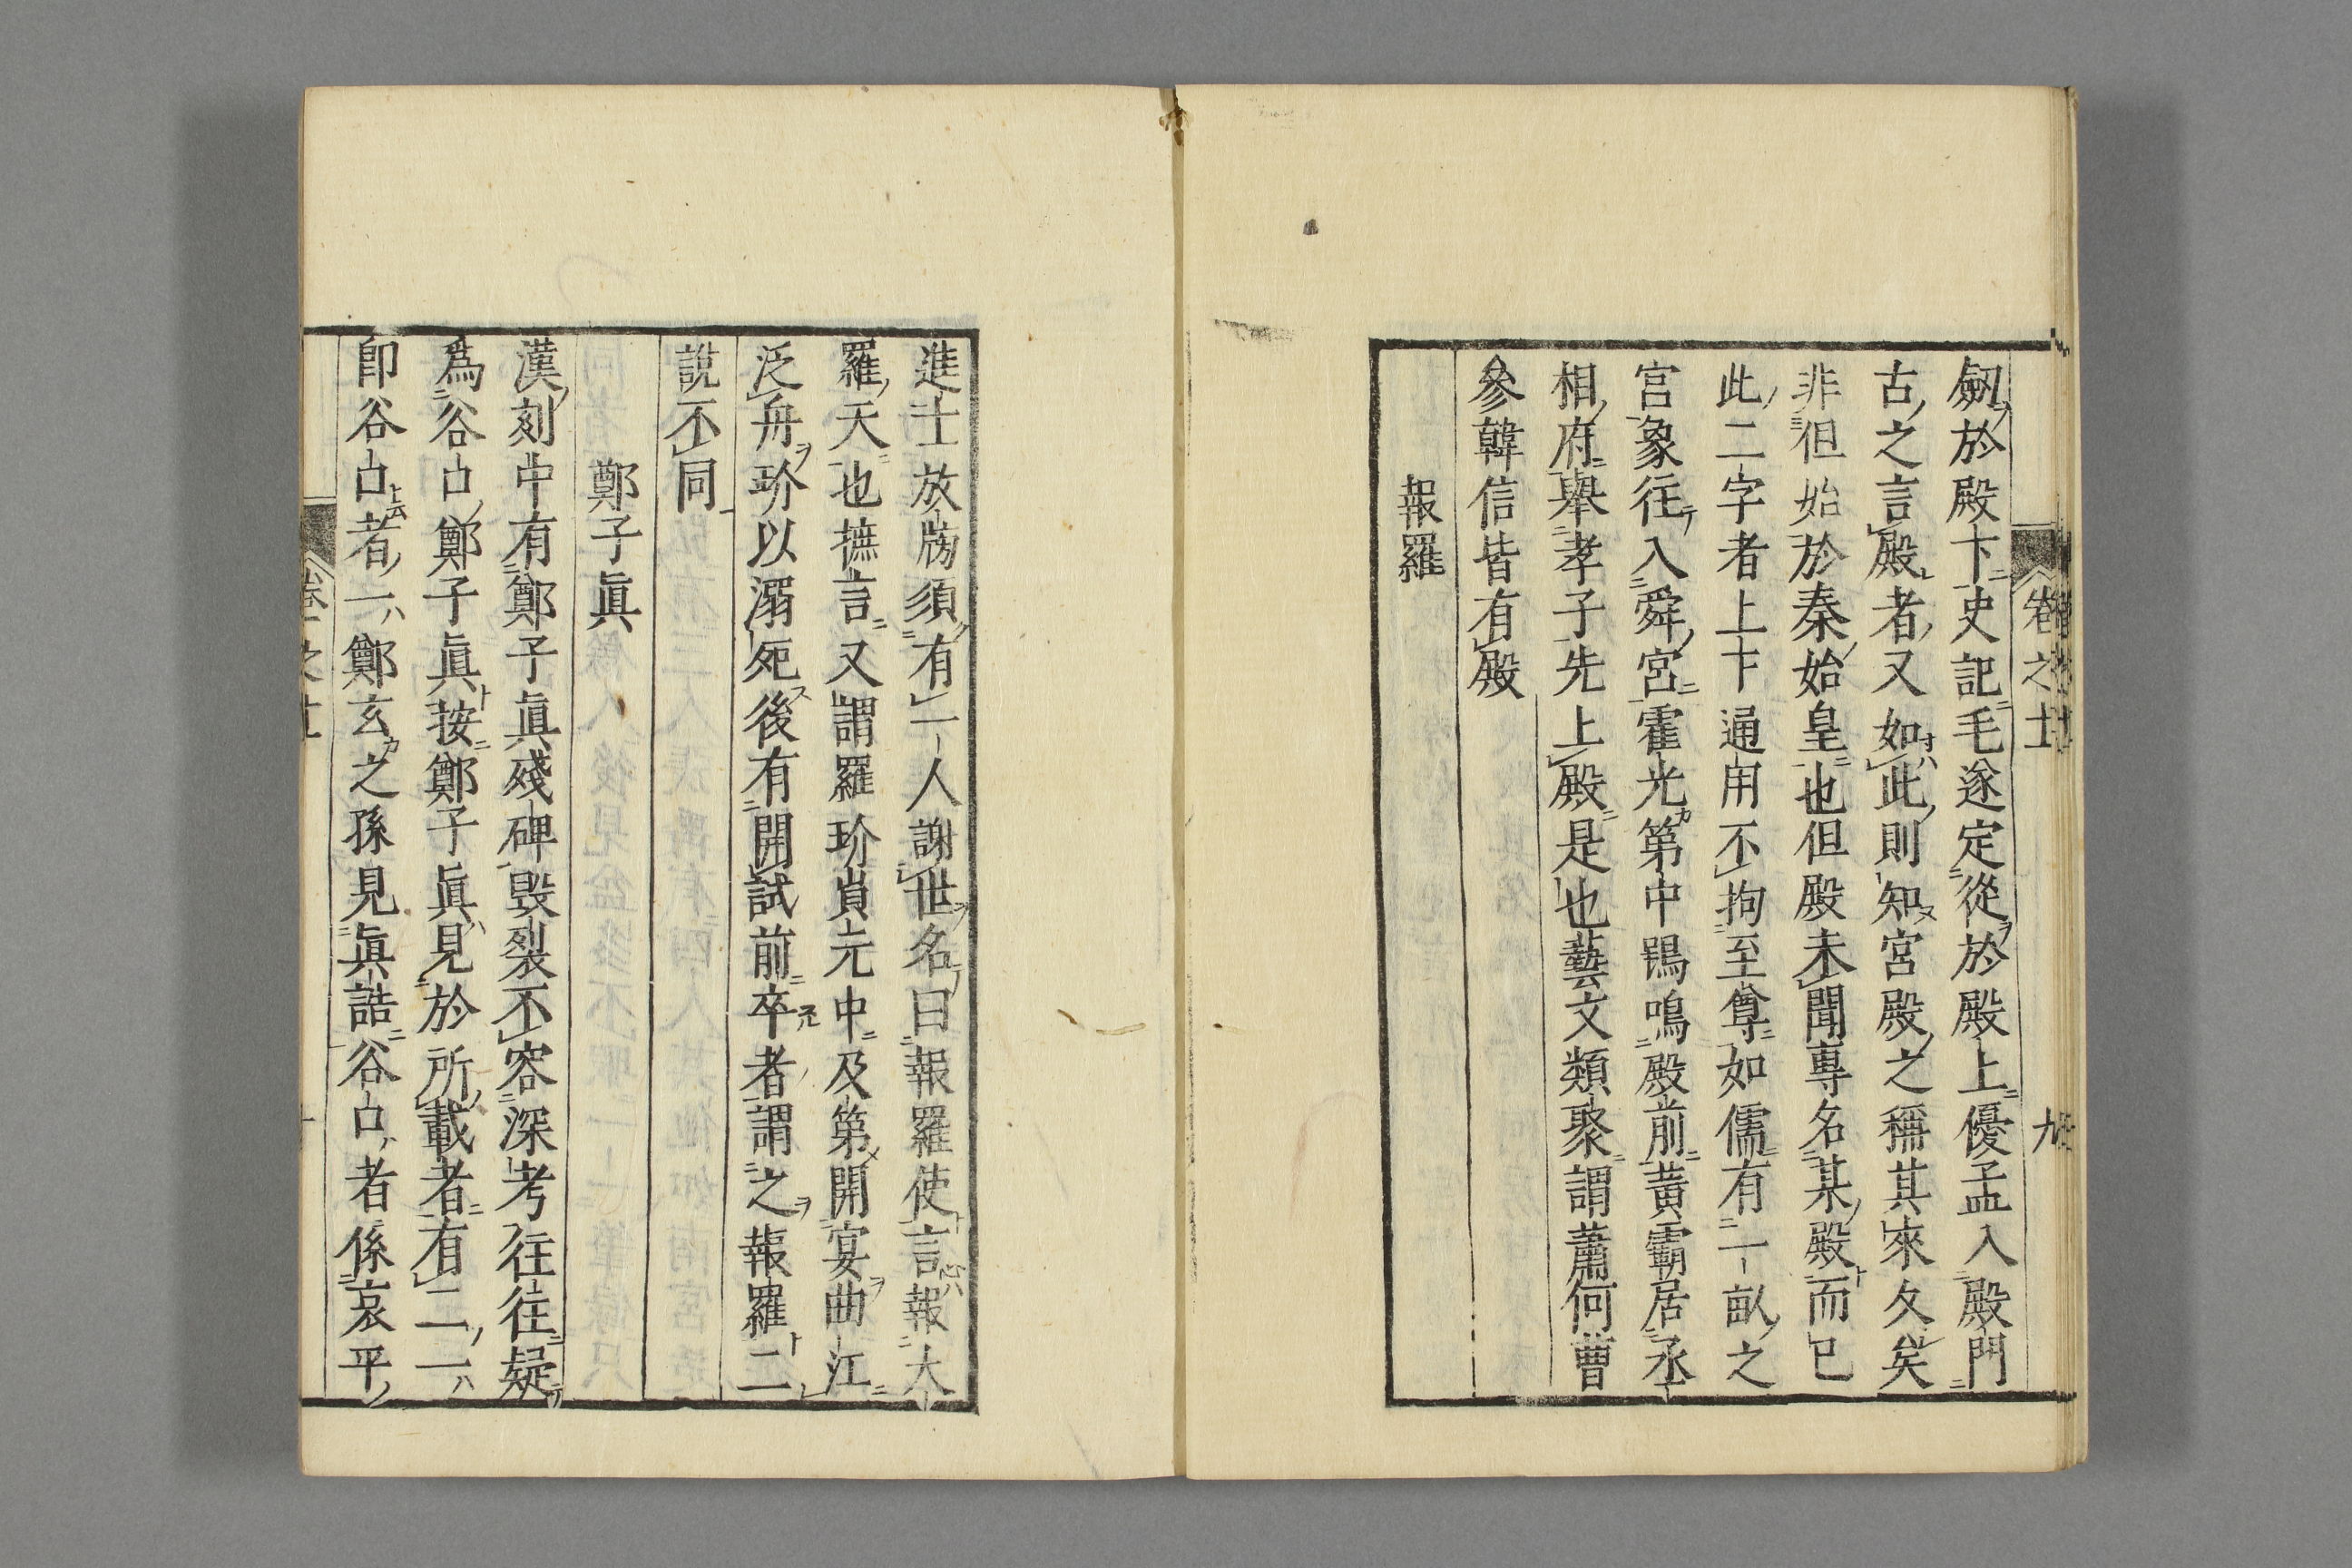 卷之十
九
劔於殿下史記毛遂定從於殿上優孟入殿門
古之言殿者又如此則知宮殿之稱其來久矣
非但始於秦始皇也但殿未聞專名某殿而已
此二字者上下通用不拘至尊如儒有一畝之
宮象往入舜宮霍光第中鴞鳴殿前黄霸居丞
相府舉孝子先上殿是也藝文類聚謂蕭何曹
參韓信皆有殿
報羅
進士放牓須有一人謝世名曰報羅使言報大
羅天也摭言又謂羅玠貞元中及第開宴曲江
泛舟玠以溺死後有開試前卒者謂之報羅二
說不同
鄭子眞
漢刻中有鄭子眞殘碑毀裂不容深考往往疑
爲谷口鄭子眞按鄭子眞見於所載者有二一
卽谷口者一鄭玄之孫見眞誥谷口者係哀平